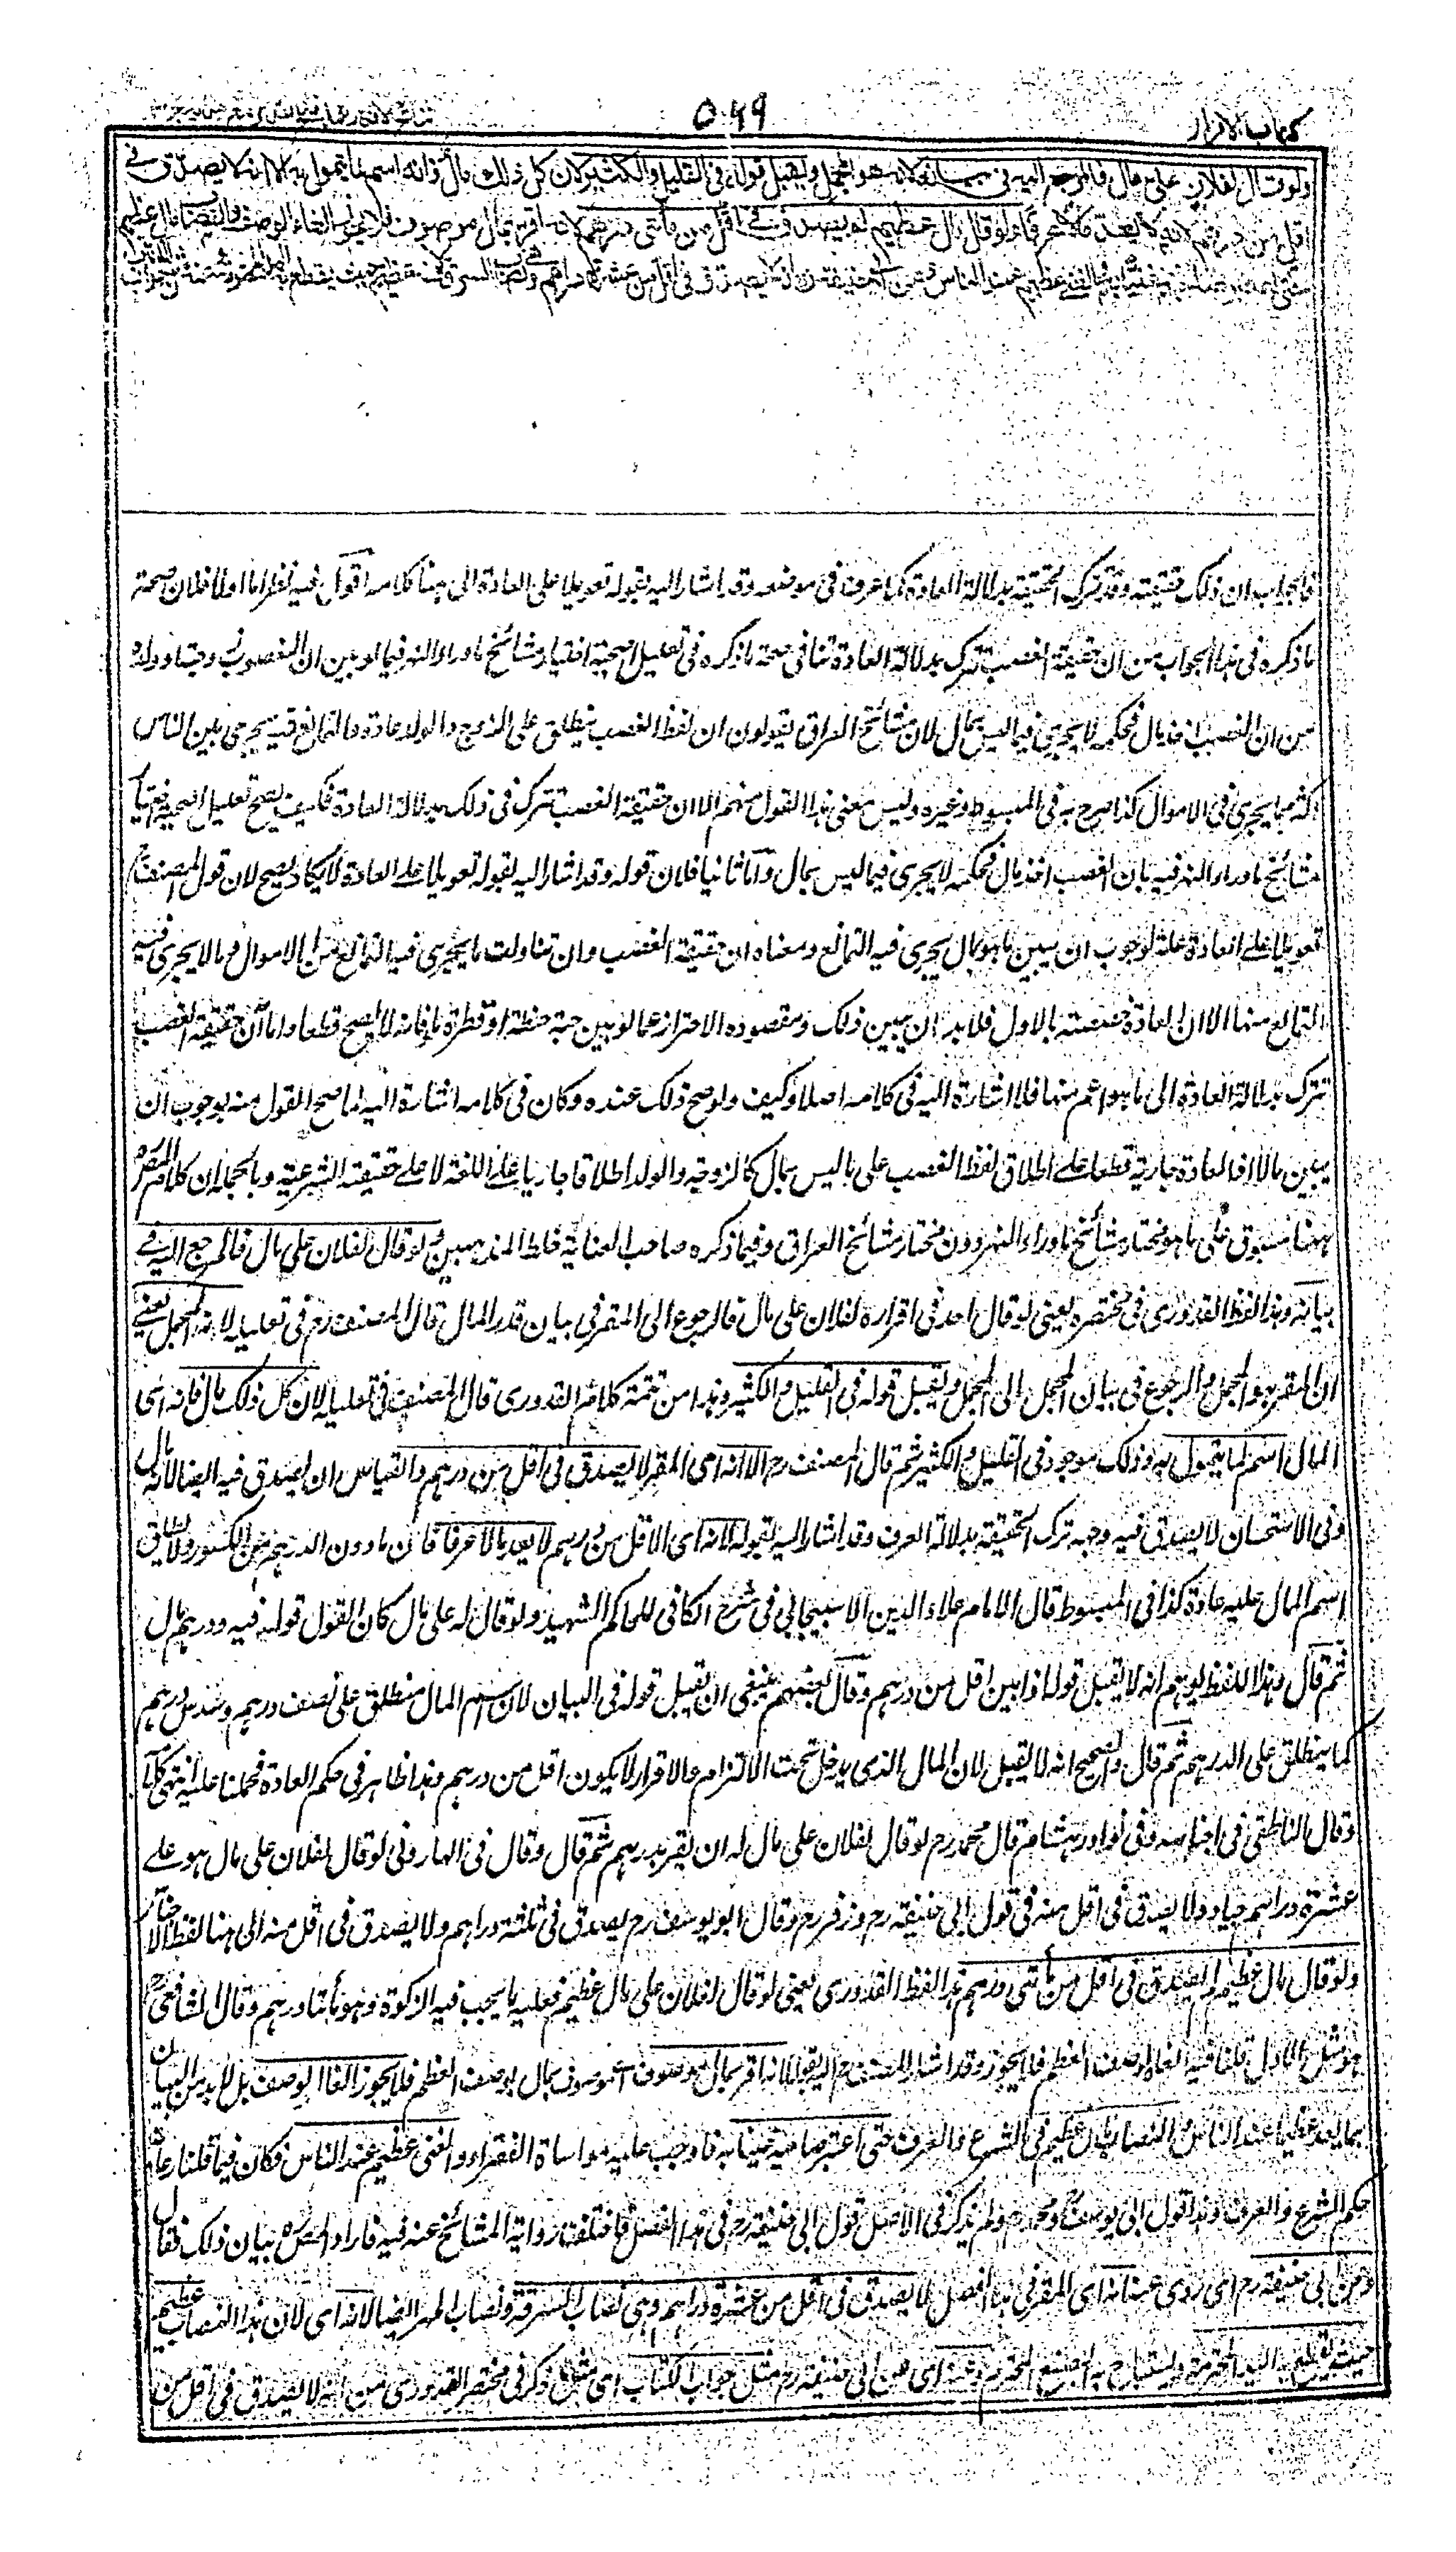 كتاب الاقرار
٥٤٩
ولو قال لفلان علي مال فالمرجع اليه في بيانه لانه هو المجمل ويقبل قوله في القليل والكثير لان كل ذلك مال فانه اسم لما يتمول به الا انه لا يصدق في
اقل من درهم لانه لا يعد مالا عرفا ولو قال مال عظيم لم يصدق في اقل من مأتي درهم لانه اقر بمال موصوف فلا يجوز الغاء الوصف والنصاب مال عظيم
حتى اعتبر صاحبه غنيا به والغني عظيم عند الناس وعن ابي حنيفة رح انه لا يصدق في اقل من عشرة دراهم وهي نصاب السرقة لانه عظيم حيث يقطع به اليد المحترمة وعنه مثل جواب الكتاب
فالجواب ان ذلك حقيقته وقد تترك الحقيقة بدلالة العادة كما عرف في موضعه وقد اشار اليه بقوله تعويلا على العادة الى هنا كلامه اقول فيه نظر اما اولا فلان صحة
ما ذكره في هذا الجواب من ان حقيقة الغصب تترك بدلالة العادة تنافي صحة ما ذكره في تعليل اصحية اختيار مشائخ ما وراء النهر فيما لو بين ان المغصوب زوجته او ولده
من ان الغصب اخذ مال فحكمه لا يجري فيما ليس بمال لان مشائخ العراق يقولون ان لفظ الغصب ينطلق على الزوج والولد عادة والتمانع فيه يجري بين الناس
اكثر مما يجري في الاموال كذا صرح به في المبسوط وغيره وليس معنى هذا القول منهم الا ان حقيقة الغصب تترك في ذلك بدلالة العادة فكيف يصح تعليل اصحية ما قاله
مشائخ ما وراء النهر فيه بان الغصب اخذ مال فحكمه لا يجري فيما ليس بمال واما ثانيا فلان قوله وقد اشار اليه بقوله تعويلا على العادة لا يكاد يصح لان قول المصنف رح
تعويلا على العادة علة لوجوب ان يبين ما هو مال يجري فيه التمانع ومعناه ان حقيقة الغصب وان تناولت ما يجري فيه التمانع من الاموال وما لا يجري فيه
التمانع منها الا ان العادة خصصته بالاول فلا بد ان يبين ذلك ومقصوده الاحتراز عما لو بين حبة حنطة او قطرة ماء فانه لا يصح قطعا واما ان حقيقة الغصب
تترك بدلالة العادة الى ما هو اعم منها فلا اشارة اليه في كلامه اصلا وكيف ولو صح ذلك عنده وكان في كلامه اشارة اليه لما صح القول منه بوجوب ان
يبين مالا اذ العادة جارية قطعا على اطلاق لفظ الغصب على ما ليس بمال كالزوجة والولد اطلاقا جاريا على اللغة لا على حقيقته الشرعية وبالجملة ان كلام المصنف رح
ههنا مسوق على ما هو مختار مشائخ ما وراء النهر دون مختار مشائخ العراق وفيما ذكره صاحب العناية خلط المذهبين ولو قال لفلان علي مال فالمرجع اليه في
بيانه وهذا لفظ القدوري في مختصره يعني لو قال احد في اقراره لفلان علي مال فالرجوع الى المقر في بيان قدر المال قال المصنف رح في تعليله لانه المجمل يعني
ان المقر هو المجمل والرجوع في بيان المجمل الى المجمل ويقبل قوله في القليل والكثير وهذا من تتمة كلام القدوري قال المصنف في تعليله لان كل ذلك مال فانه اي
المال اسم لما يتمول به وذلك موجود في القليل والكثير ثم قال المصنف رح الا انه اي المقر لا يصدق في اقل من درهم والقياس ان يصدق فيه ايضا لانه مال
وفي الاستحسان لا يصدق فيه وجهه ترك الحقيقة بدلالة العرف وقد اشار اليه بقوله لانه اي الاقل من درهم لا يعد مالا عرفا فان ما دون الدرهم من الكسور ولا يطلق
اسم المال عليه عادة كذا في المبسوط قال الامام علاء الدين الاسبيجابي في شرح الكافي للحاكم الشهيد ولو قال له علي مال كان القول قوله فيه ودرهم مال
ثم قال وهذا اللفظ يوهم انه لا يقبل قوله اذا بين اقل من درهم وقال بعضهم ينبغي ان يقبل قوله في البيان لان اسم المال منطلق على نصف درهم وسدس درهم
كما ينطلق على الدرهم ثم قال والصحيح انه لا يقبل لان المال الذي يدخل تحت الالتزام والاقرار لا يكون اقل من درهم وهذا ظاهر في حكم العادة فحملنا عليه انتهى كلامه
وقال الناطفي في اجناسه وفي نوادر هشام قال محمد رح لو قال لفلان علي مال له ان يقر بدرهم ثم قال وقال في الهاروني لو قال لفلان علي مال هو على
عشرة دراهم جياد ولا يصدق في اقل منه في قول ابي حنيفة رح وزفر رح وقال ابو يوسف رح يصدق في ثلثة دراهم ولا يصدق في اقل منه الى هنا لفظ الاجناس
ولو قال مال عظيم لم يصدق في اقل من مأتي درهم هذا لفظ القدوري يعني لو قال لفلان علي مال عظيم فعليه ما يجب فيه الزكوة وهو مأتا درهم وقال الشافعي رح
هو مثل الاول قلنا فيه الغاء لوصف العظم فلا يجوز وقد اشار المصنف رح اليه بقوله لانه اقر بمال موصوف اي موصوف بمال بوصف العظم فلا يجوز الغاء الوصف بل لا بد من البيان
بما يعد عظيما عند الناس والنصاب مال عظيم في الشرع والعرف حتى اعتبر صاحبه غنيا به فاوجب عليه مواساة الفقراء والغني عظيم عند الناس فكان فيما قلنا رعاية
حكم الشرع والعرف وهذا قول ابي يوسف رح ومحمد رح ولم يذكر في الاصل قول ابي حنيفة رح في هذا الفصل فاختلفت رواية المشائخ عنه فيه فاراد المصنف رح بيان ذلك فقال
وعن ابي حنيفة رح اي روي عنه انه اي المقر في هذا الفصل لا يصدق في اقل من عشرة دراهم وهي نصاب السرقة ونصاب المهر ايضا لانه اي لان هذا النصاب عظيم
حيث يقطع به اليد المحترمة ويستباح به البضع المحترم وعنه اي عن ابي حنيفة رح مثل جواب الكتاب اي مثل ما ذكر في مختصر القدوري من انه لا يصدق في اقل من